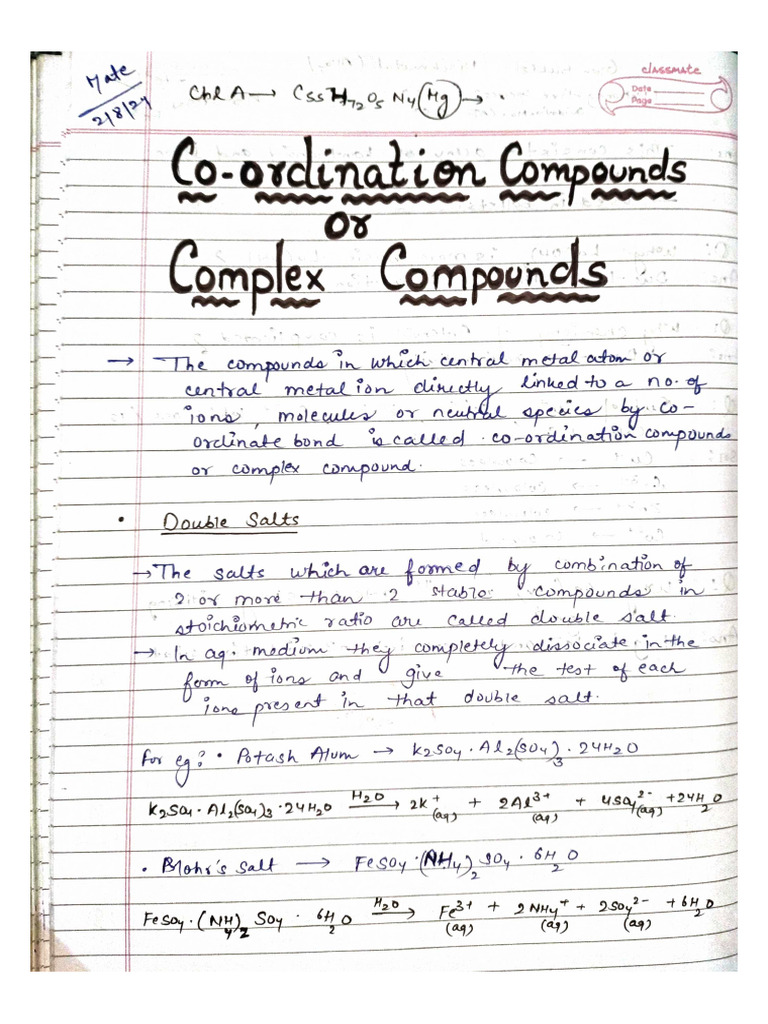 Mate
2/8/24
Chl A → C55H72O5N4(Mg) → .
classmate
Date
Page
Co-ordination Compounds
or
Complex Compounds
→ The compounds in which central metal atom or
central metal ion directly linked to a no. of
ions, molecules or neutral species by co-
ordinate bond is called co-ordination compounds
or complex compound.
• Double Salts
→ The salts which are formed by combination of
2 or more than 2 stable compounds in
stoichiometric ratio are called double salt.
→ In aq. medium they completely dissociate in the
form of ions and give the test of each
ions present in that double salt.
for eg: • Potash Alum → K2SO4 · Al2(SO4)3 · 24H2O
K2SO4 · Al2(SO4)3 · 24H2O H2O→ 2K+(aq) + 2Al3+(aq) + 4SO4 2-(aq) + 24H2O
• Mohr's salt → FeSO4 · (NH4)2 SO4 · 6H2O
FeSO4 · (NH4)2 SO4 · 6H2O H2O→ Fe3+(aq) + 2NH4+(aq) + 2SO4 2-(aq) + 6H2O